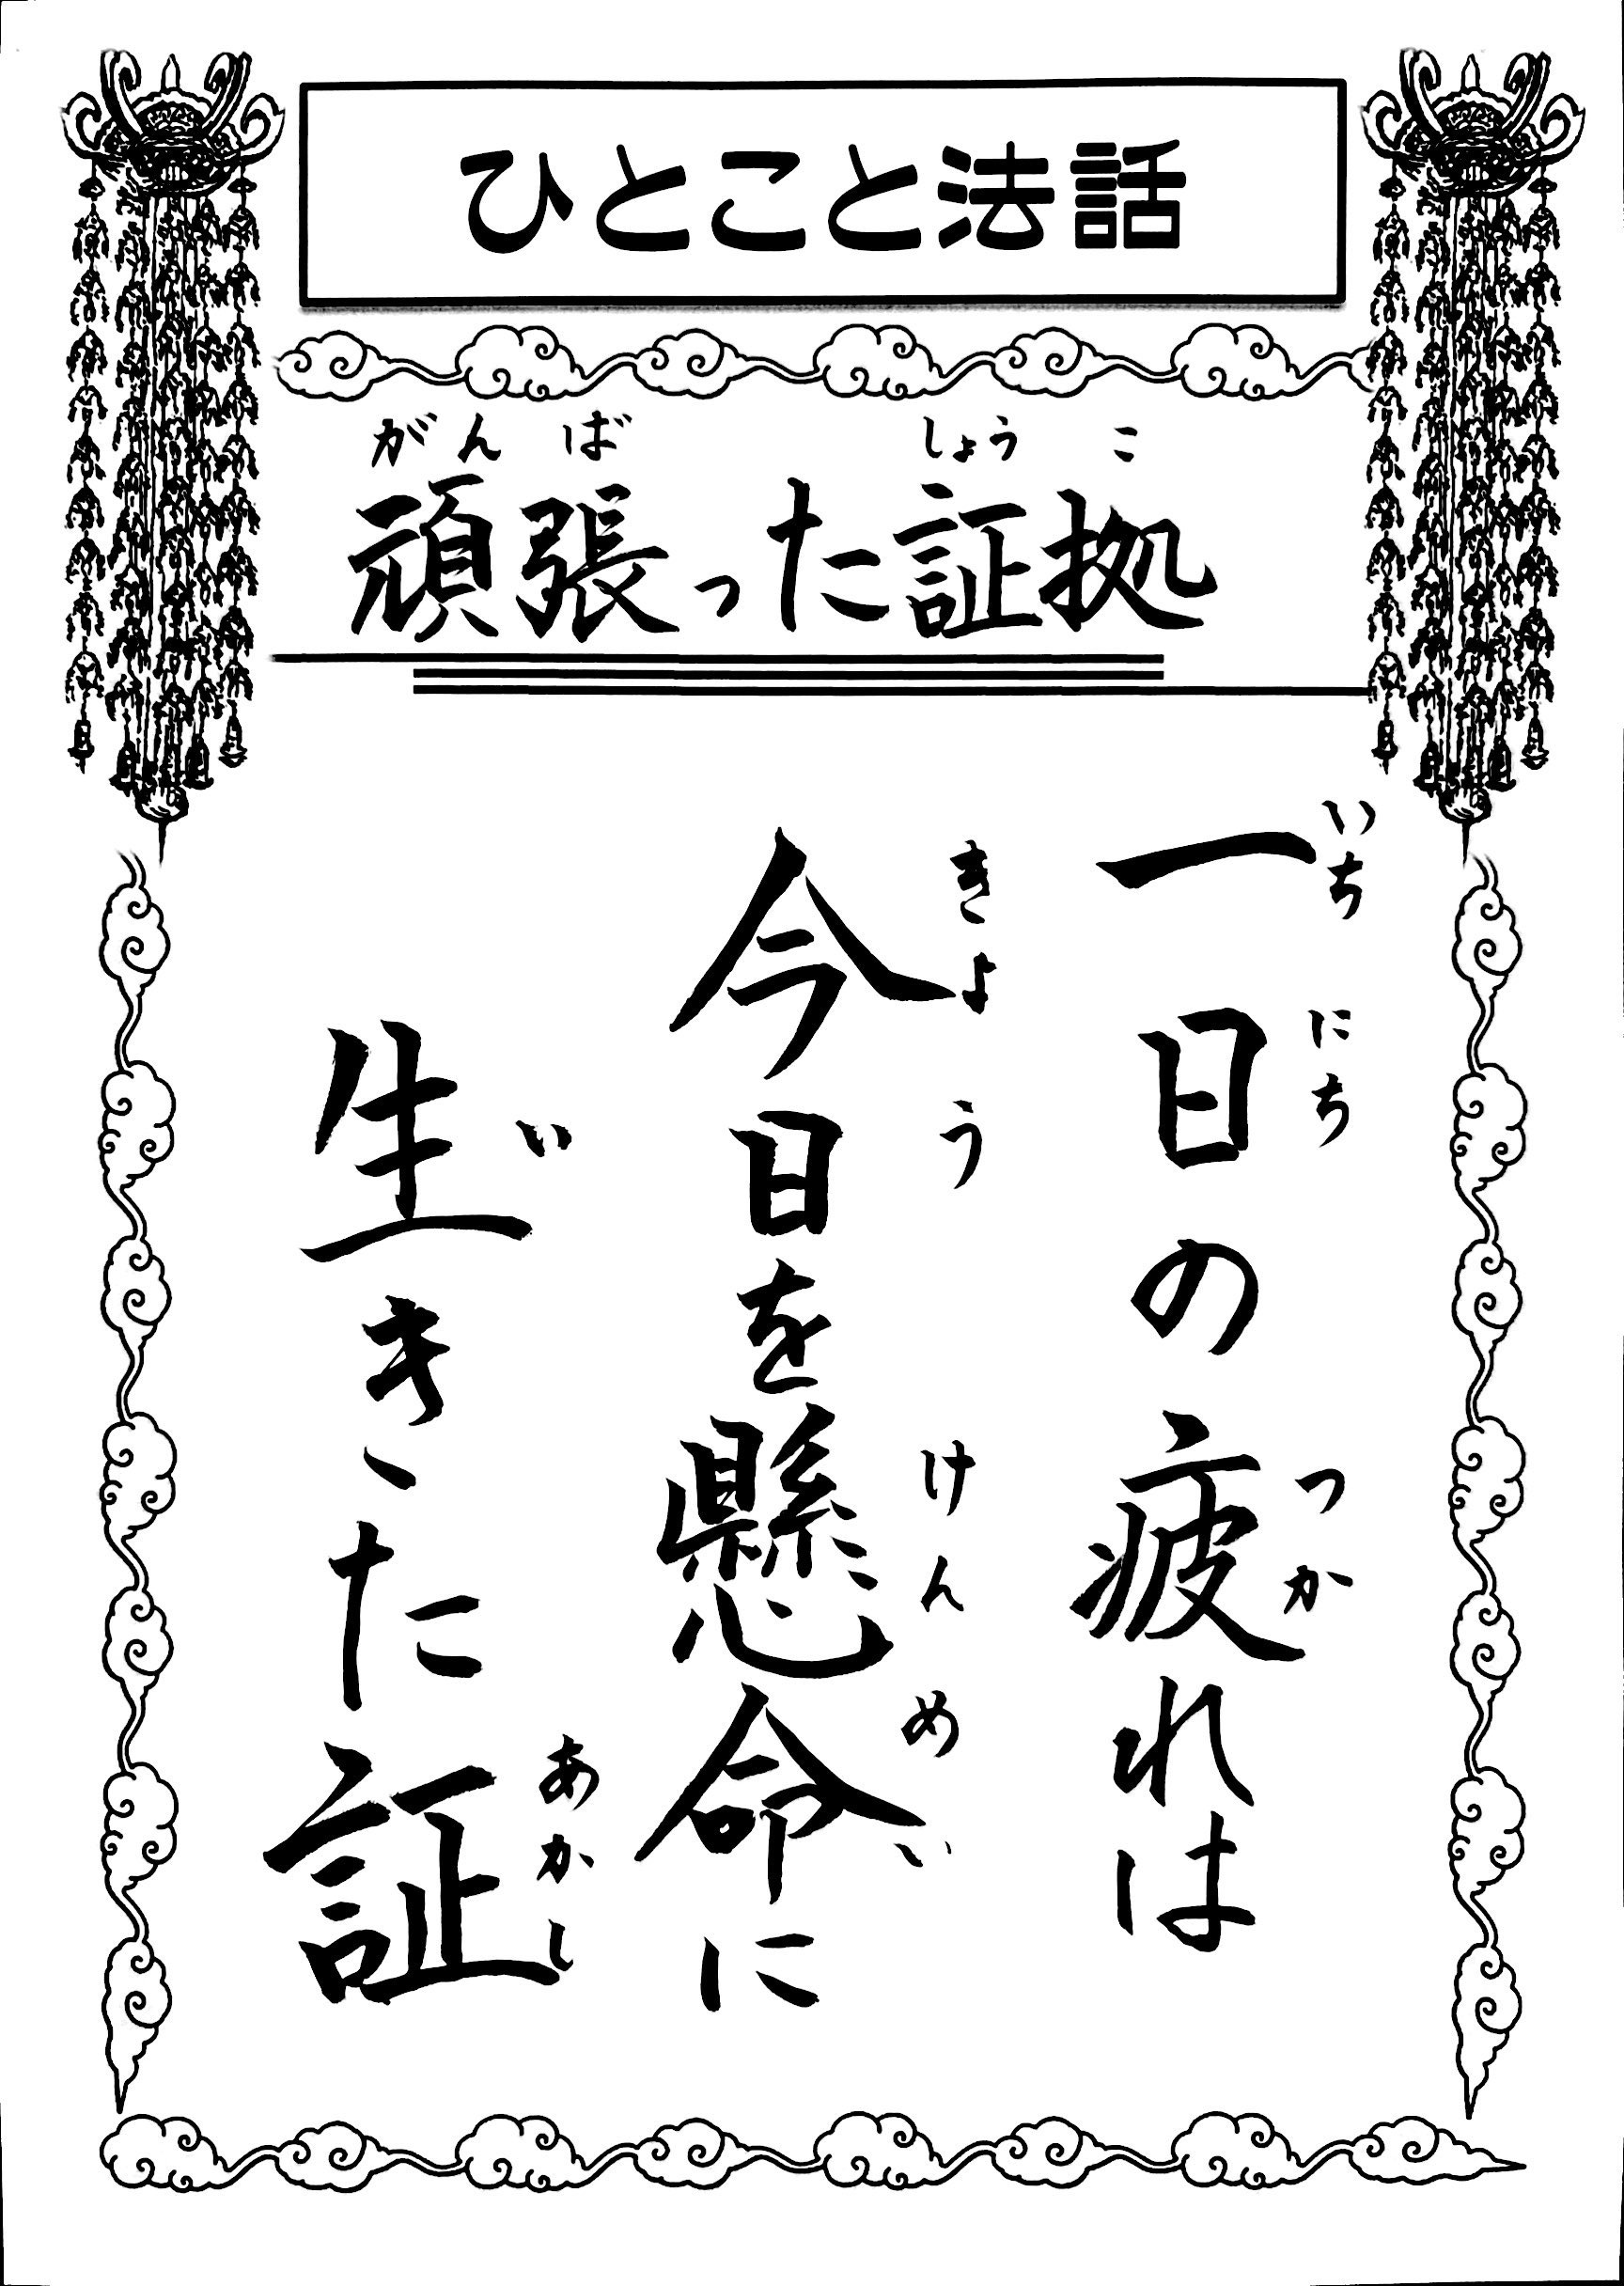 ひとこと法話
がんば しょうこ
頑張った証拠
いちにち つか
一日の疲れは
きょう けんめい
今日を懸命に
い あかし
生きた証